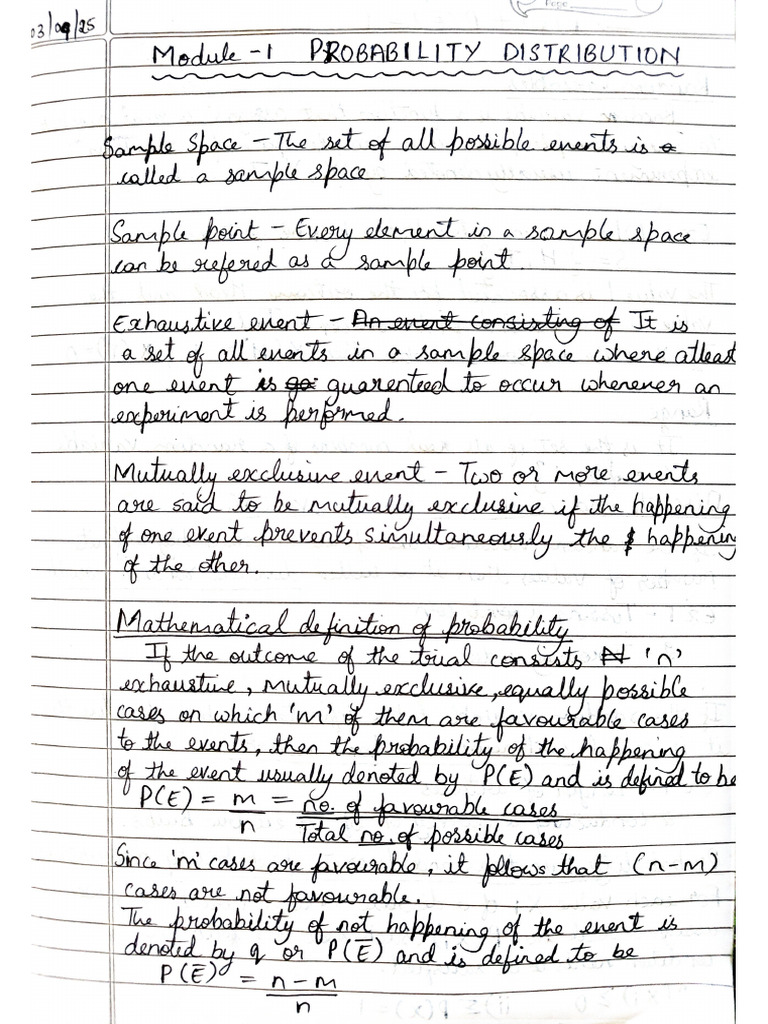 Page
03/09/25
Module - 1 PROBABILITY DISTRIBUTION
Sample Space - The set of all possible events is a
called a sample space
Sample point - Every element in a sample space
can be refered as a sample point.
Exhaustive event - An event consisting of It is
a set of all events in a sample space where atleast
one event is go guarenteed to occur whenever an
experiment is performed.
Mutually exclusive event - Two or more events
are said to be mutually exclusive if the happening
of one event prevents simultaneously the happening
of the other.
Mathematical definition of probability
If the outcome of the trial consists N 'n'
exhaustive, mutually exclusive, equally possible
cases on which 'm' of them are favourable cases
to the events, then the probability of the happening
of the event usually denoted by P(E) and is defined to be
P(E) = m/n = no. of favourable cases / Total no. of possible cases
Since 'm' cases are favourable, it follows that (n-m)
cases are not favourable.
The probability of not happening of the event is
denoted by q or P(Ē) and is defined to be
P(Ē) = n-m/n